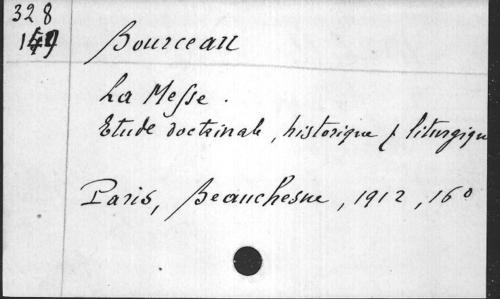 328
149
Bourceau
La Messe.
Etude doctrinale, historique & liturgique
Paris, Beauchesne, 1912, 16°